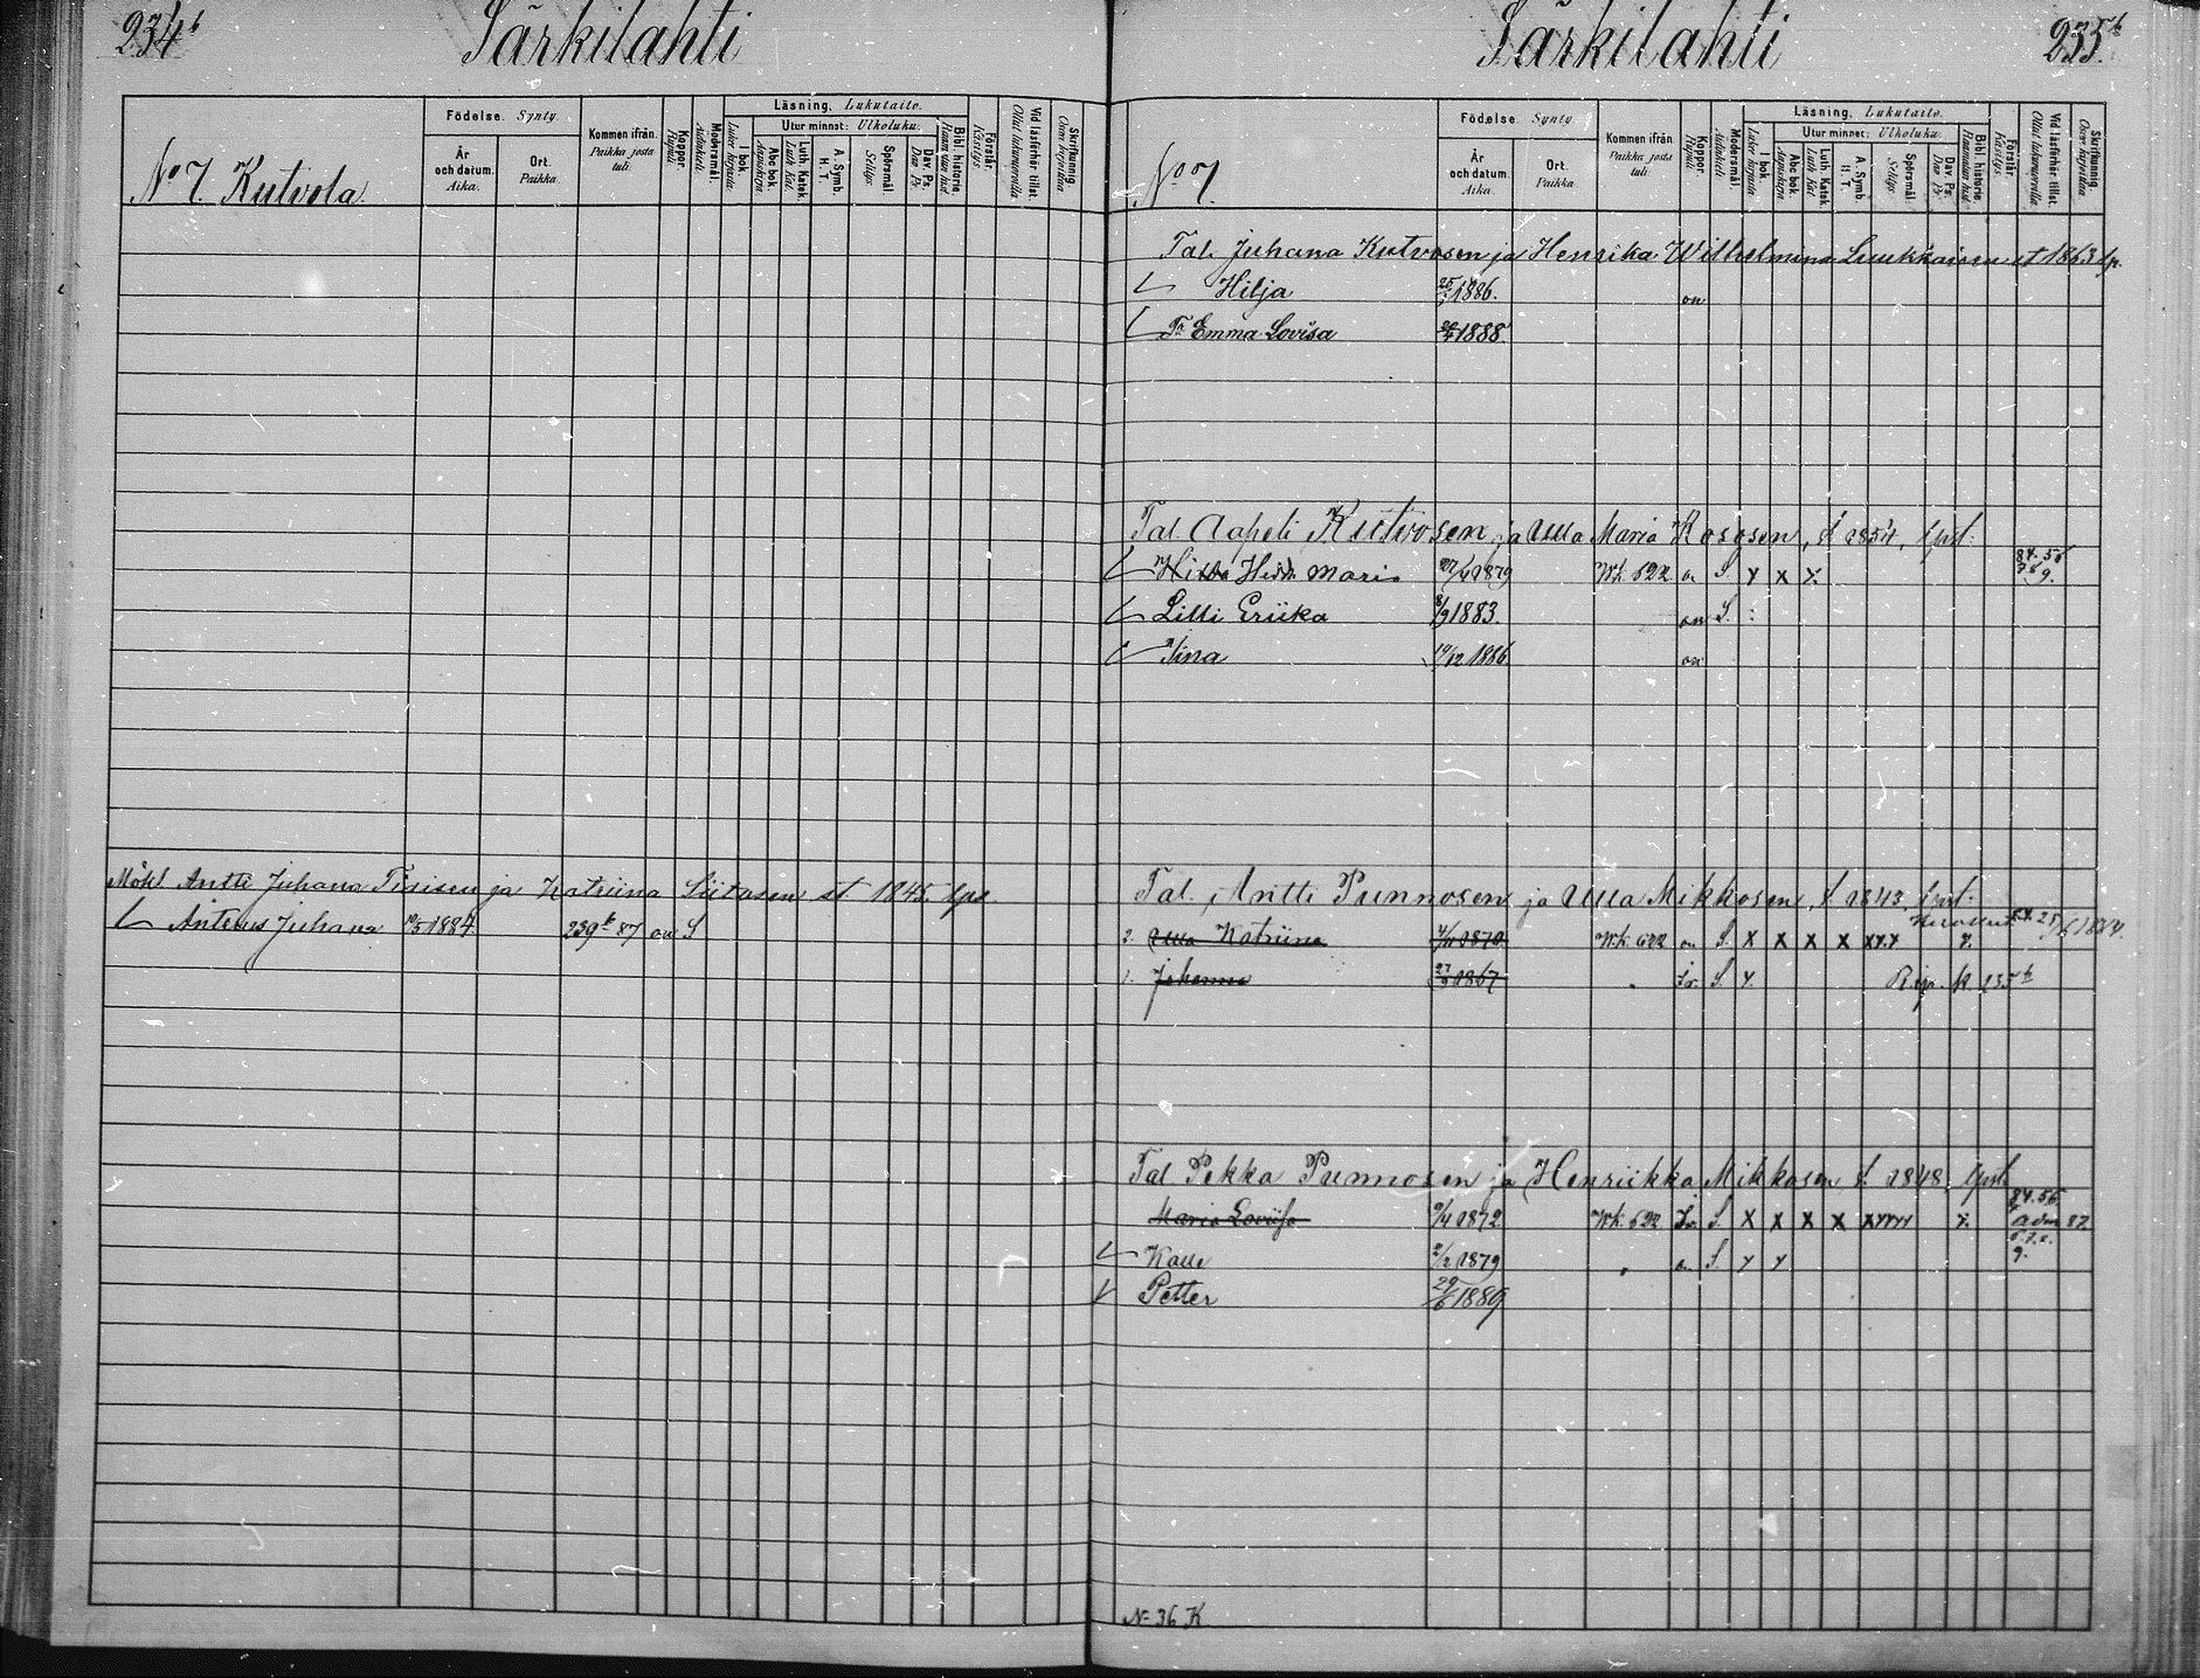 234b
Särkilahti
No 7. Kutvola.
Födelse. Synty.
År och datum. Aika.
Ort. Paikka.
Kommen ifrån. Paikka josta tuli.
Koppor. Rupuli
Modersmål. Äidinkieli
Läsning. Lukutaito.
I bok. Lukee kirjasta.
Utur minnet: Ulkoluku.
Abc bok. Aapiskirja.
Luth. Katek. Luth. Kat.
A. Symb. H. T.
Spörsmål. Selitys.
Dav. Ps. Dav. Ps.
Bibl. historie. Raamatun hist.
Förstår. Käsitys.
Vid läsförhör tillst. Ollut lukuvuorolla
Skrifkunnig. Osaa kirjoittaa.
Mökl Antti Juhana Tiaisen ja Katriina Siitasen st. 1845. lps.
Anterus Juhana 10/5 1884 239b 87 on S
Särkilahti
235b.
No 7.
Födelse. Synty.
År och datum. Aika.
Ort. Paikka.
Kommen ifrån Paikka josta tuli.
Koppor. Rupuli
Modersmål. Äidinkieli
Läsning. Lukutaito.
I bok. Lukee kirjasta.
Utur minnet: Ulkoluku.
Abc bok. Aapiskirja.
Luth. Katek. Luth. Kat.
A. Symb. H. T.
Spörsmål. Selitys.
Dav. Ps. Dav. Ps.
Bibl. historie. Raamatun hist.
Förstår. Käsitys.
Vid läsförhör tillst. Ollut lukuvuorolla
Skrifkunnig. Osaa kirjoittaa.
Tal. Juhana Kutvosen ja Henrika Wilhelmina Luukkaisen st 1863 lp.
Hilja 1886. on
Tr Emma Lovisa 1888
Tal. Aapeli Kutvosen ja Ulla Maria Rososen, s. 1854, lpst:
Maria 27/4 1879 Wk. 622 on S. 84. 56 7.8 9.
Lilli Eriika 8/9 1883. on S. :
Iina 14/12 1886 on
Tal. Antti Punnosen ja Ulla Mikkosen, s. 1843, lpst:
2. Ulla Katriina 4/11 1870 Wk. 622 on S. x x x x
1. Johanna 27/9 1867 " S. Rip. k. 235b
Tal. Pekka Punnosen ja Henriikka Mikkosen s. 1848, lpst
Maria Loviisa 9/4 1872 Wk. 622 S. x x x x 84. 56 adm 87
Kalle 2/2 1879 " on S. 9.
Petter 29/6 1889
No 36 K